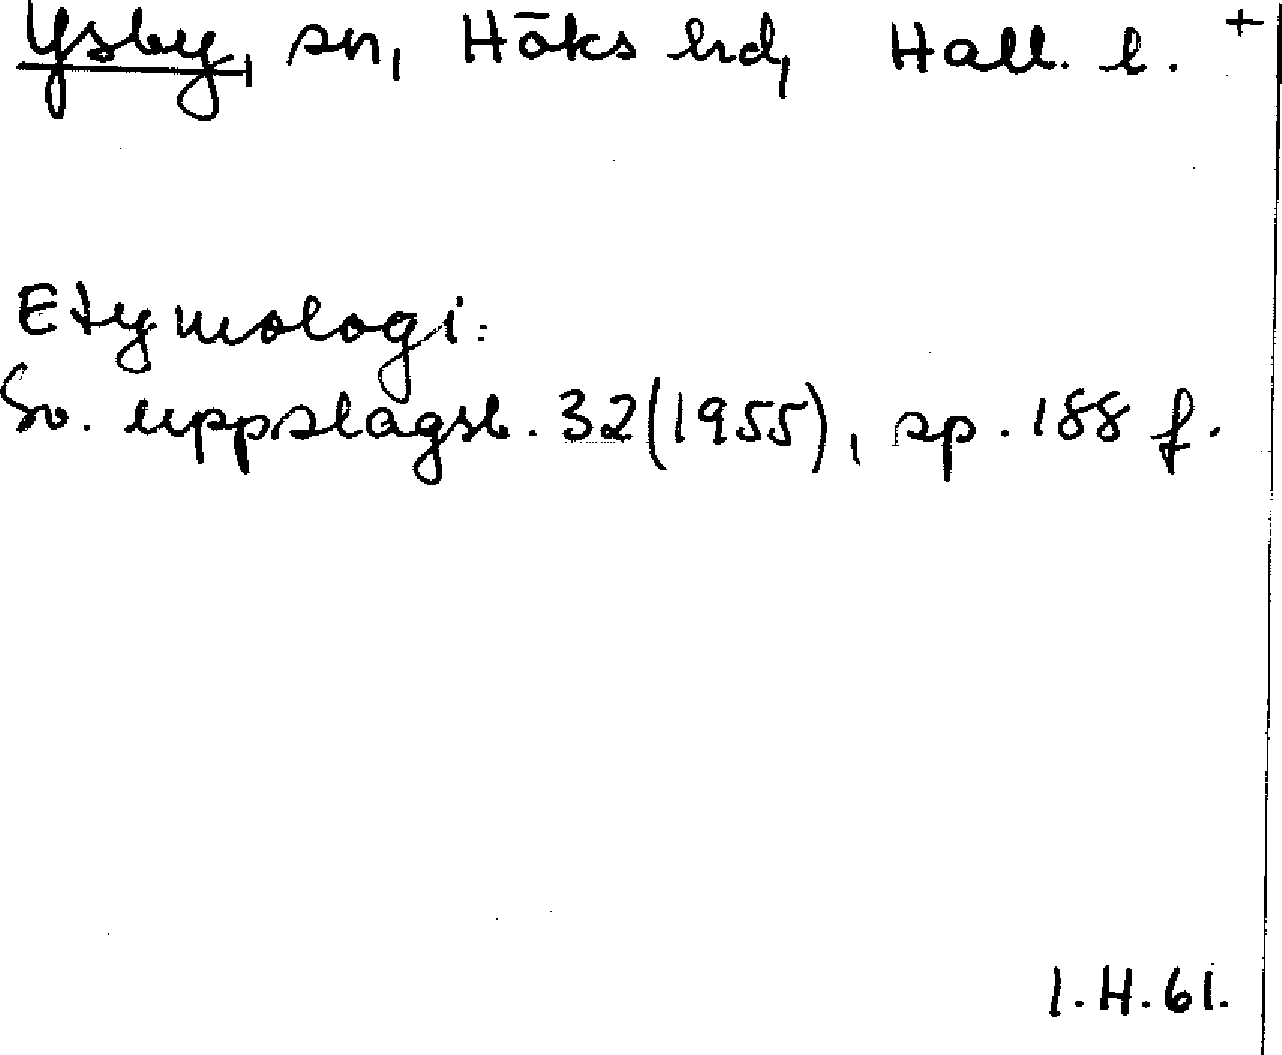 Ysby, sn, Höks hd, Hall. l. +
Etymologi:
Sv. uppslagsb. 32 (1955), sp. 188 f.
I.H.61.